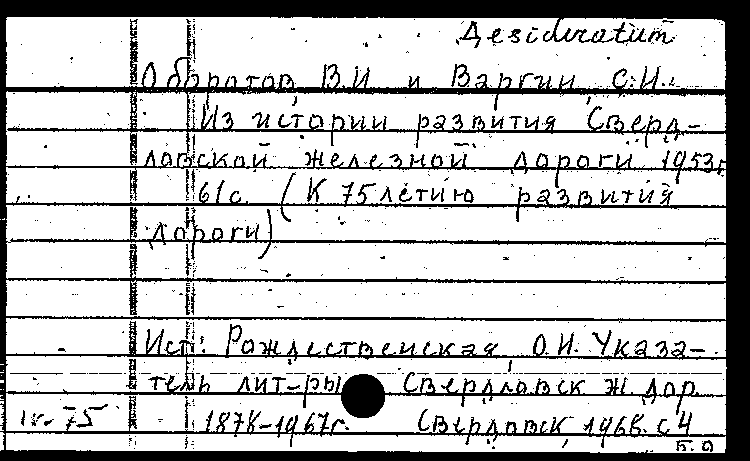 Desideratum
Оборотов, В.И. и Варгин, С.И.
Из истории развития Сверд-
ловской железной дороги 1953г
61с. (К 75летию развития
дороги)
Ист: Рождественская, О.И. Указа-
тель лит-ры Свердловск ж. дор.
1878-1967г. Свердловск, 1968. с 4